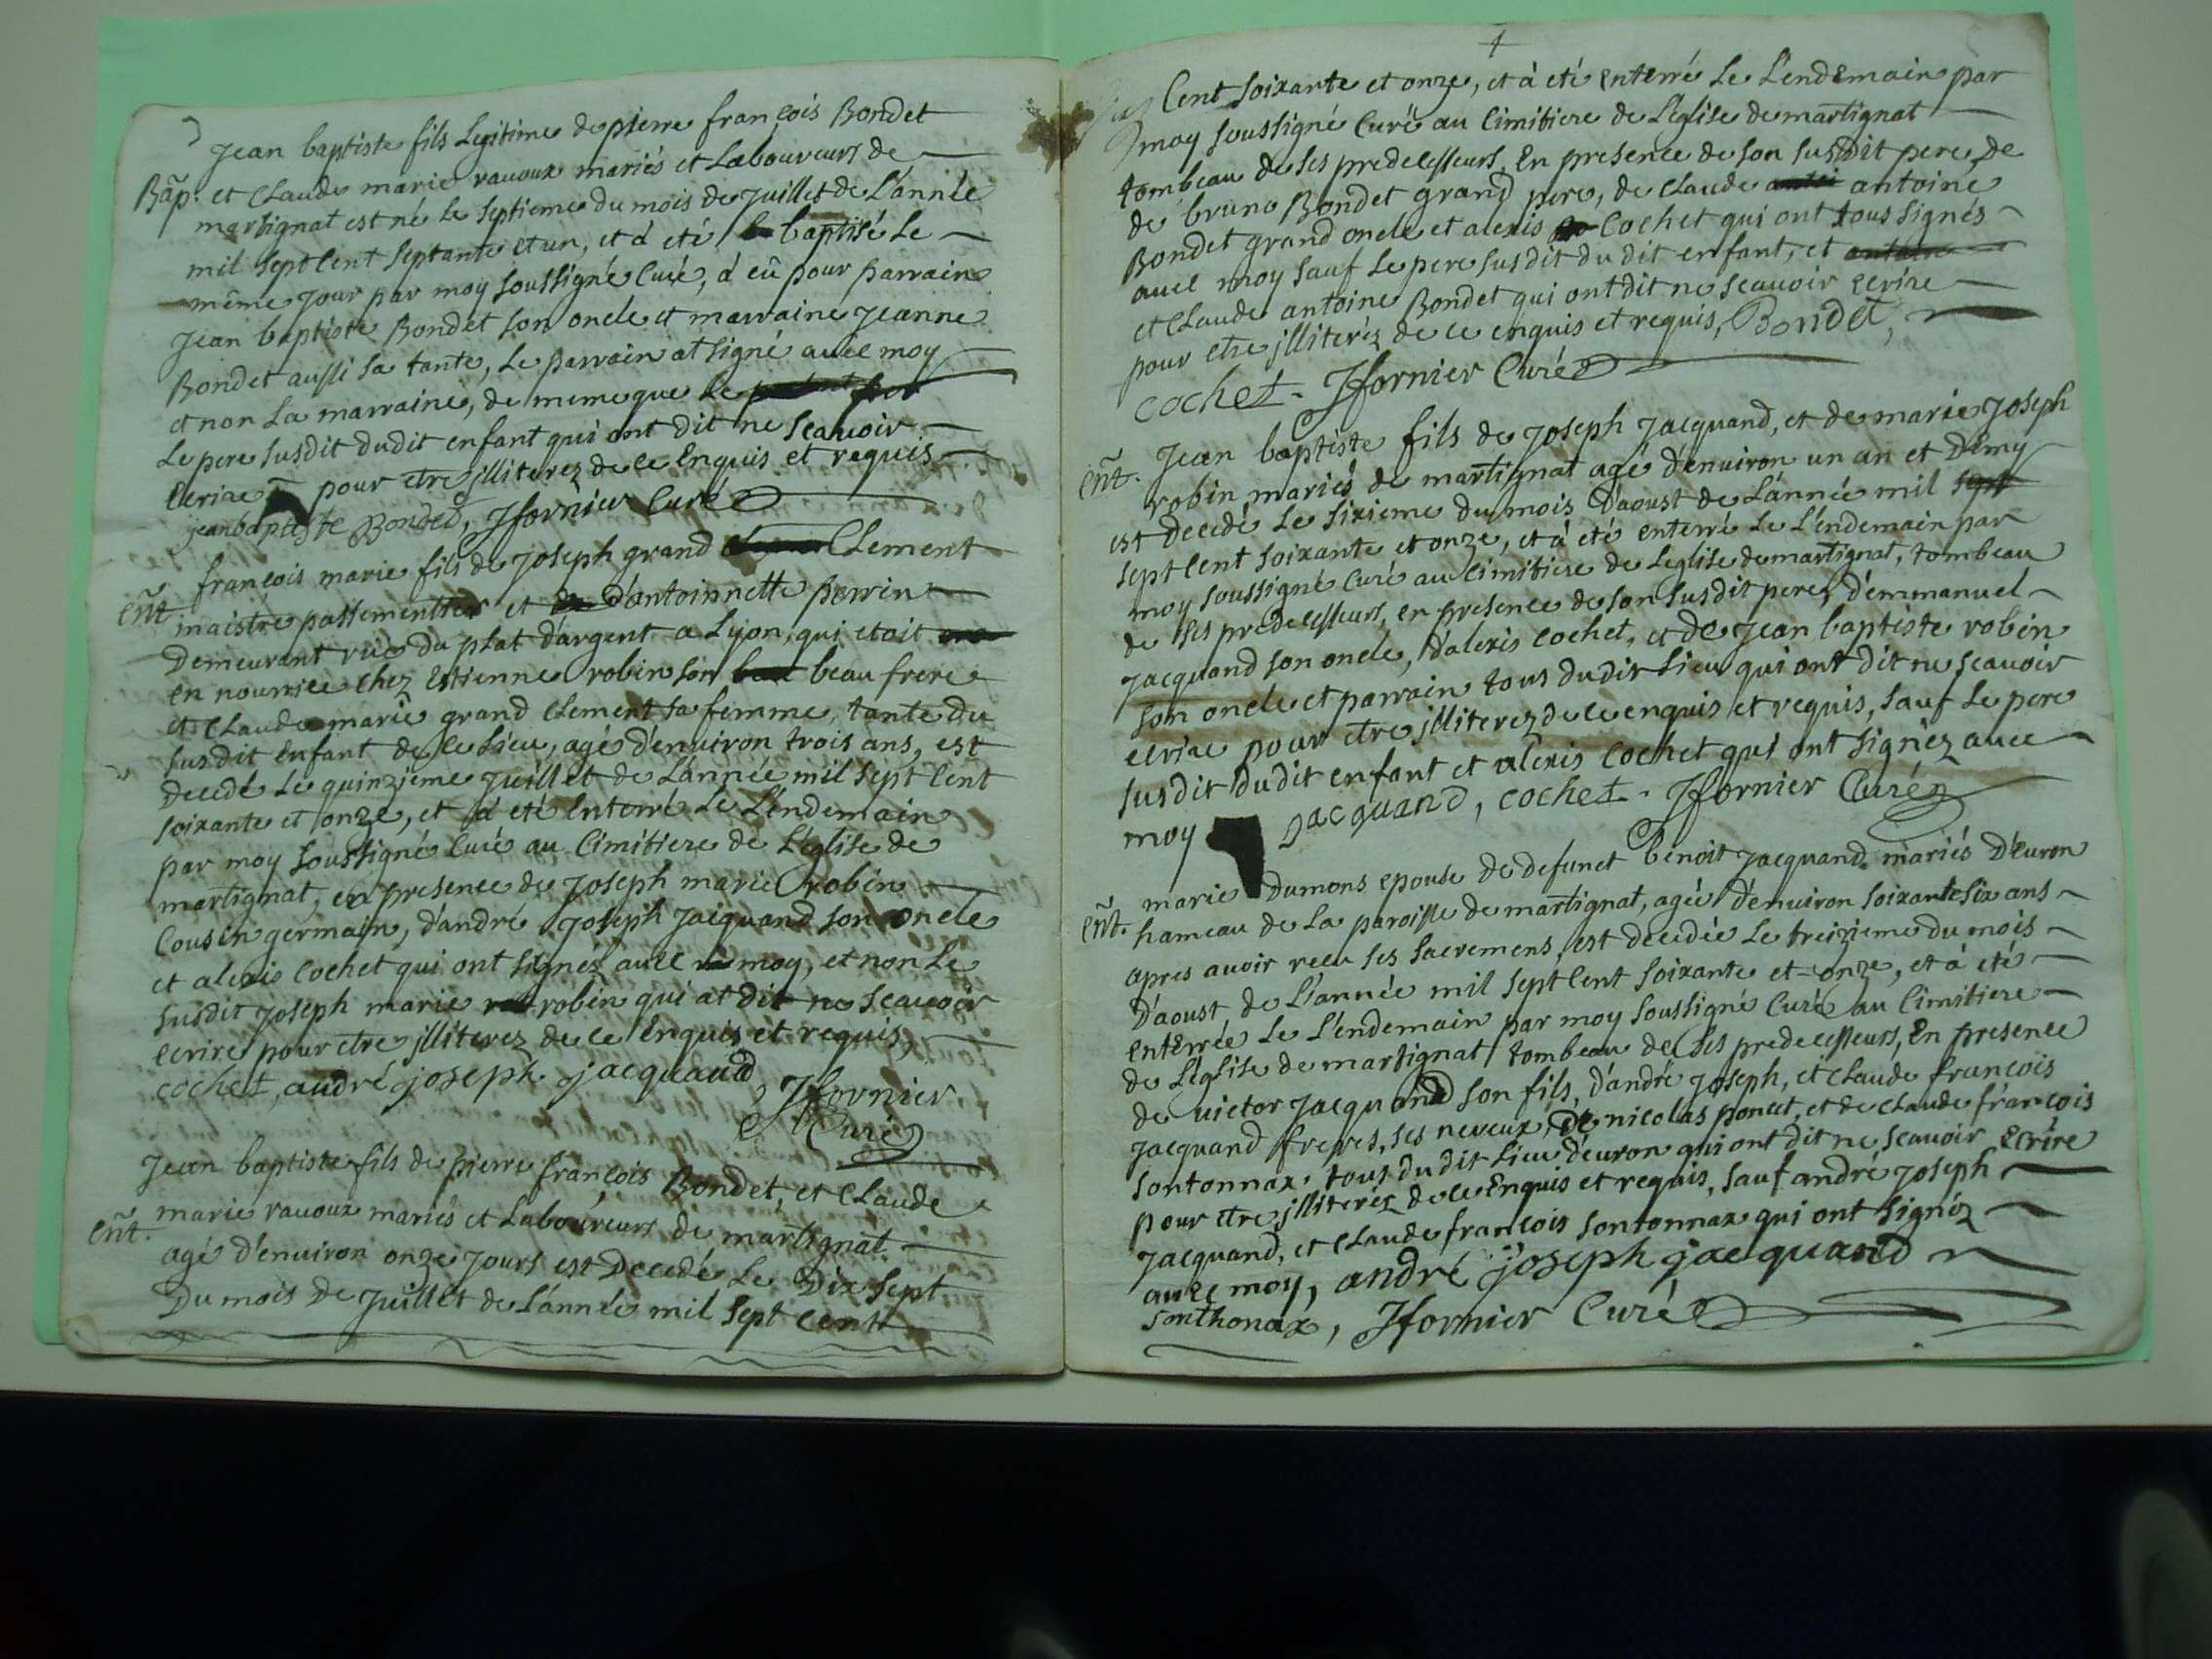 Jean baptiste fils Legitime de pierre francois Bondet
Bãp. et Claude marie ravoux mariés et Laboureurs de
martignat est né Le Septieme du mois de Juillet de L'année
mil Sept Cent Septante et un, et à eté baptisé Le
même Jour par moy Soussigné Curé, à eû pour parrain
Jean baptiste Bondet Son oncle et marraine Jeanne
Bondet aussi Sa tante, Le parrain at Signé avec moy
et non La marraine, de meme que Le
Le pere Susdit dudit enfant qui ont dit ne Scavoir
Ecrire pour etre jlliterez de ce Enquis et requis
jeanbaptiste Bondet, Jfornier Curé
francois marie fils de Joseph grand Clement
Eñt. maistre passementier et d'antoinnette perrin
Demeurant rüe du plat d'argent a Lyon, qui etoit
en nourrice chez Estienne robin Son beau frere
et Claude marie grand Clement Sa femme, tante du
Susdit Enfant de ce Lieu, agé d'environ trois ans, est
decedé Le quinzieme Juillet de L'année mil Sept Cent
Soixante et onze, et à eté Enterré Le L'endemain
par moy Soussigné Curé au Cimitiere de L'eglise de
martignat, en presence de Joseph marie robin
Cousin germain, d'andré Joseph Jacquand Son oncle
et alexis Cochet qui ont Signéz avec moy, et non Le
Susdit Joseph marie robin qui at dit ne Scavoir
ecrire pour etre jlliterez de ce Enquis et requis,
cochet, andré joseph jacquand
Jfornier
Curé
Jean baptiste fils de pierre francois Bondet, et Claude
marie ravoux mariés et Laboureurs de martignat
Eñt. agé d'environ onze Jours est Decedé Le Dix Sept
Du mois De Juillet de L'année mil Sept Cent
Cent Soixante et onze, et à eté Enterré Le L'endemain par
moy Soussigné Curé au Cimitiere de L'eglise de martignat
tombeau de Ses predecesseurs, En presence de Son Susdit pere, de
de bruno Bondet grand pere, de Claude antoine
Bondet grand oncle et alexis Cochet qui ont tous Signés
avec moy Sauf Le pere Susdit du dit enfant, et
et Claude antoine Bondet qui ont dit ne Scavoir ecrire
pour etre jlliteréz de ce enquis et requis, Bondet,
cochet. Jfornier Curé
Jean baptiste fils de Joseph Jacquand, et de marie Joseph
Eñt. robin mariés de martignat agé d'environ un an et Demy
est Decedé Le Sixieme du mois D'aoust de L'année mil Sept
Sept Cent Soixante et onze, et à eté enterré Le L'endemain par
moy Soussigné Curé au Cimitiere de Leglise de martignat, tombeau
de Ses predecesseurs, en presence de Son Susdit pere, d'emmanuel
Jacquand Son oncle, D'alexis Cochet, et de Jean baptiste robin
Son oncle et parrain tous dudit Lieu qui ont dit ne Scavoir
ecrire pour etre jlliterez de ce enquis et requis, Sauf Le pere
Susdit Dudit enfant et alexis Cochet qui ont Signéz avec
moy Jacquand, cochet. Jfornier Curé
marie Dumons epouse de defunct benoit Jacquand mariés D'Evron
Eñt. hameau de La paroisse de martignat, agée D'environ Soixante Six ans
apres avoir recu Ses Sacremens, est decedée Le treizieme du mois
D'aoust de L'année mil Sept Cent Soixante et onze, et à eté
Enterrée Le L'endemain par moy Soussigné Curé au Cimitiere
de L'eglise de martignat tombeau de Ses predecesseurs, En presence
de victor Jacquand Son fils, D'andré Joseph, et Claude francois
Jacquand freres, Ses neveux, De nicolas poncet, et de Claude francois
Sontonnax, tous du dit Lieu d'Evron qui ont dit ne Scavoir Ecrire
pour etre jlliteréz de ce Enquis et requis, Sauf andré Joseph
Jacquand, et Claude francois Sontonnax qui ont Signéz
avec moy, andré joseph jacquand
Sonthonax, Jfornier Curé